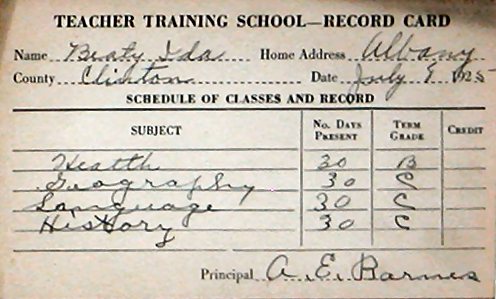 TEACHER TRAINING SCHOOL—RECORD CARD
Name Beaty Ida Home Address Albany
County Clinton Date July 9 1925
SCHEDULE OF CLASSES AND RECORD
SUBJECT No. Days Present Term Grade Credit
Health 30 B
Geography 30 C
Language 30 C
History 30 C
Principal A. E. Barnes